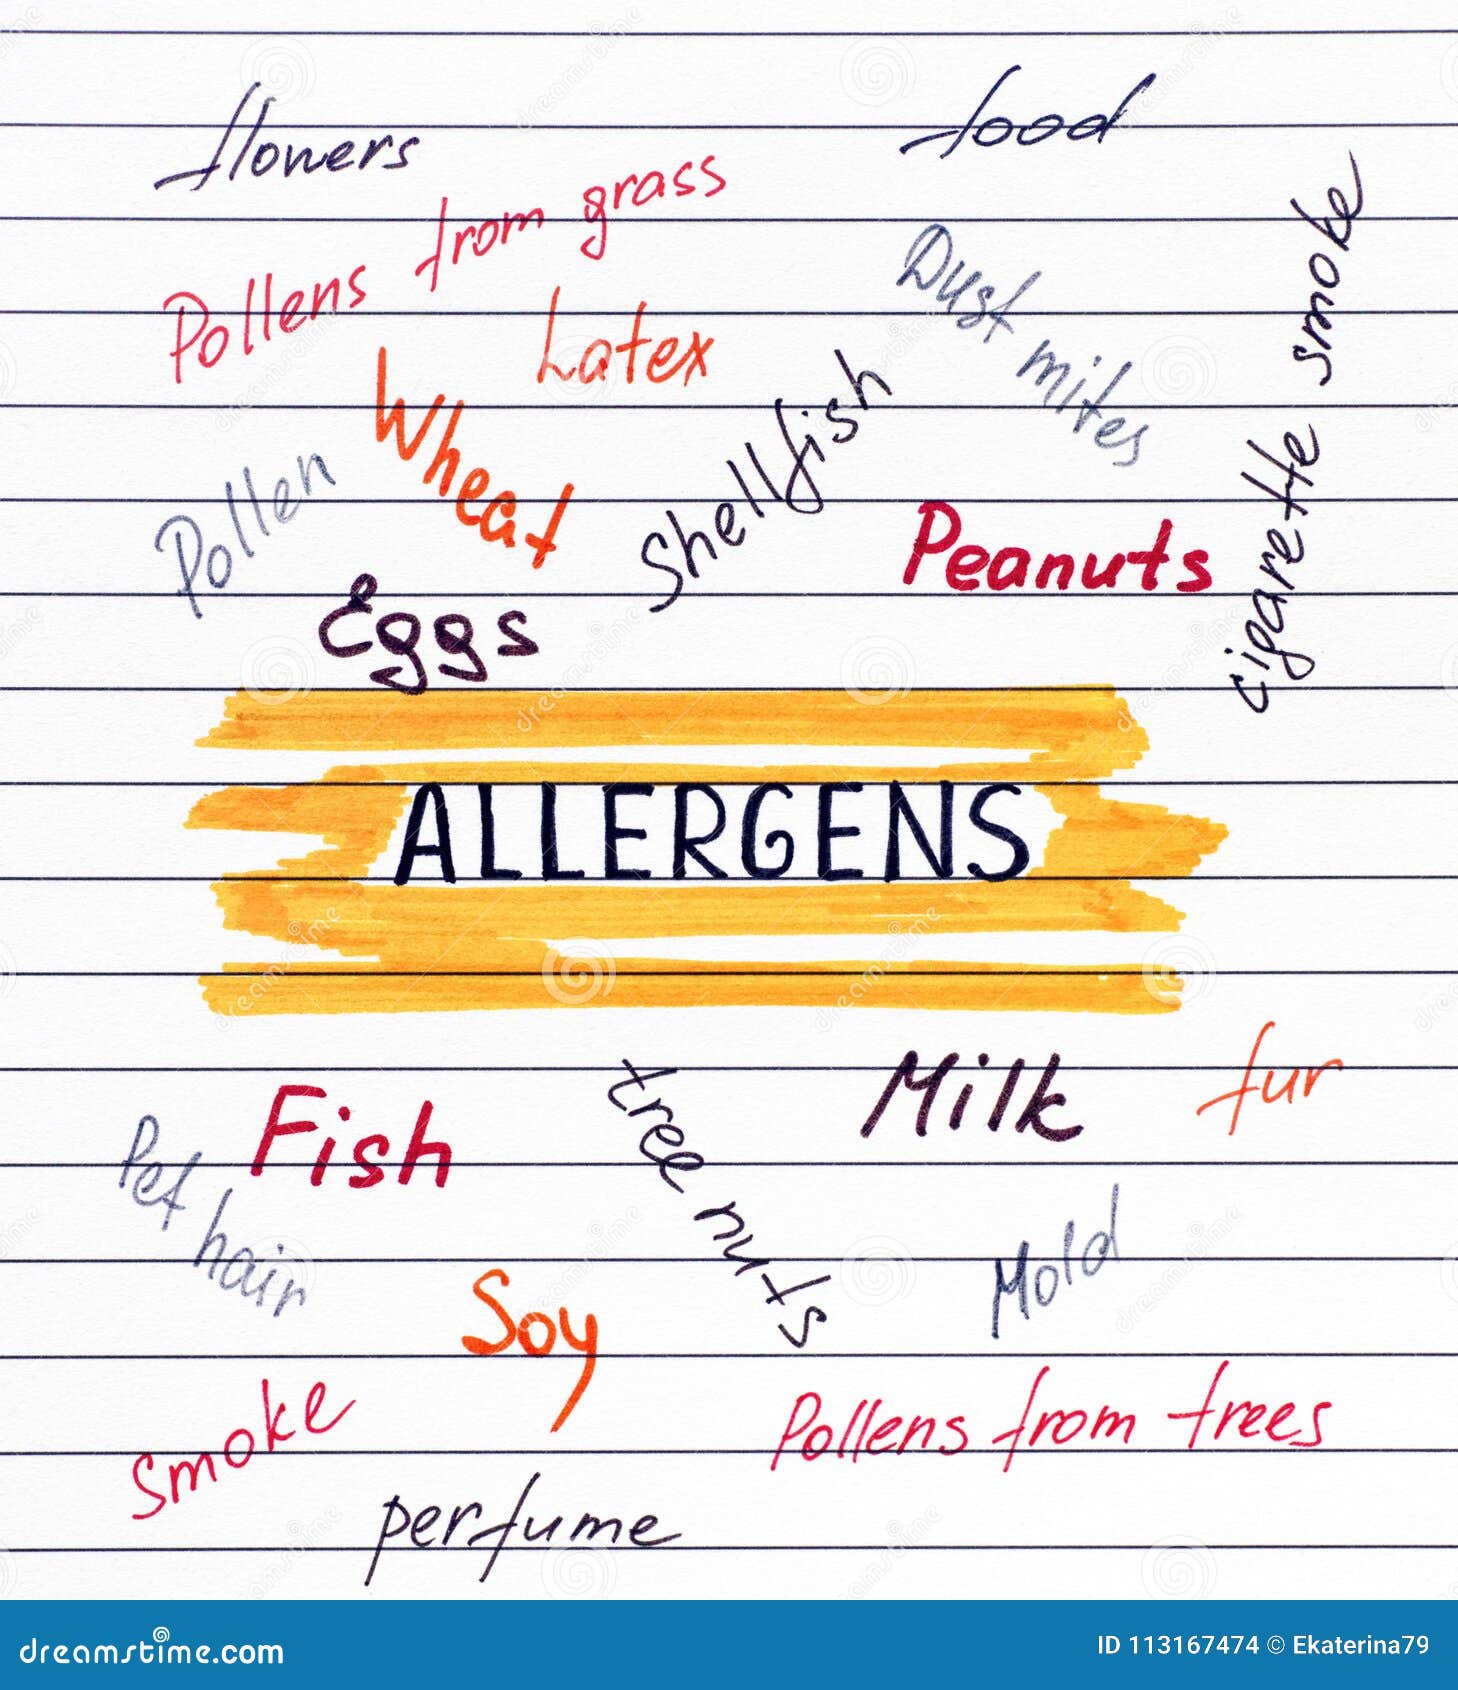 flowers
food
Pollens from grass
Dust mites
cigarette smoke
Latex
Wheat
Shellfish
Pollen
Peanuts
Eggs
ALLERGENS
Milk
fur
Fish
tree nuts
Pet hair
Mold
Soy
Smoke
Pollens from trees
perfume
dreamstime.com
ID 113167474 © Ekaterina79